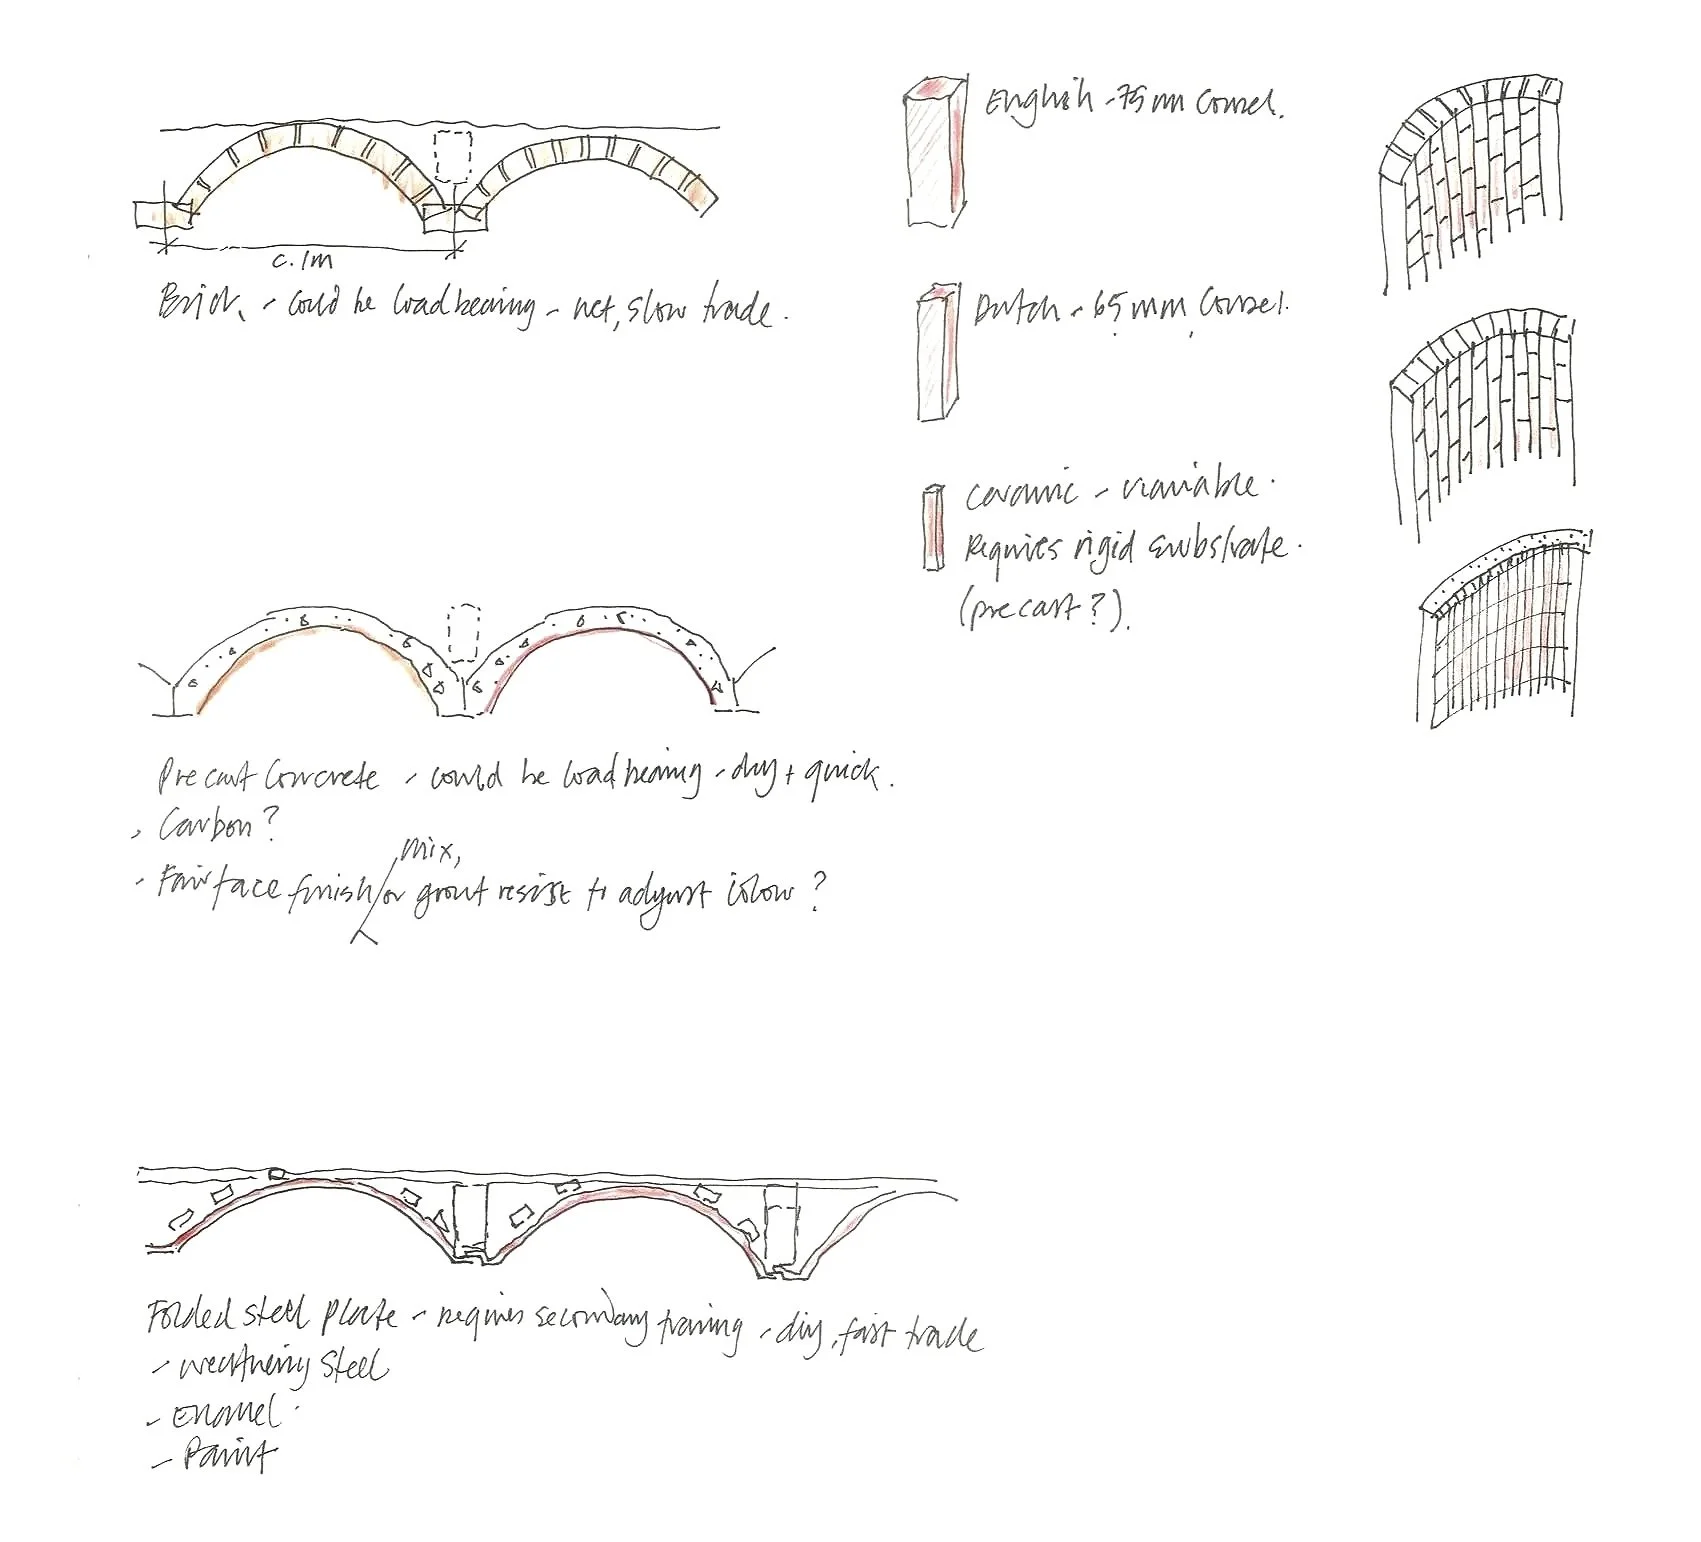 c. 1m
Brick - could be loadbearing - wet, slow trade.
English - 75mm Coursel.
Dutch - 65mm Coursel.
Ceramic - variable.
Requires rigid substrate.
(precast?).
Precast Concrete - could be loadbearing - dry + quick.
- Carbon?
mix,
- Fairface finish/or grout resist to adjust colour?
Folded steel plate - requires secondary framing - dry, fast trade
- weathering steel
- Enamel.
- Paint